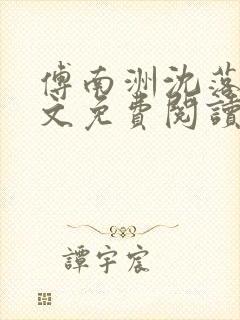 傅南洲沈落
文免費閱讀
譚宇宸